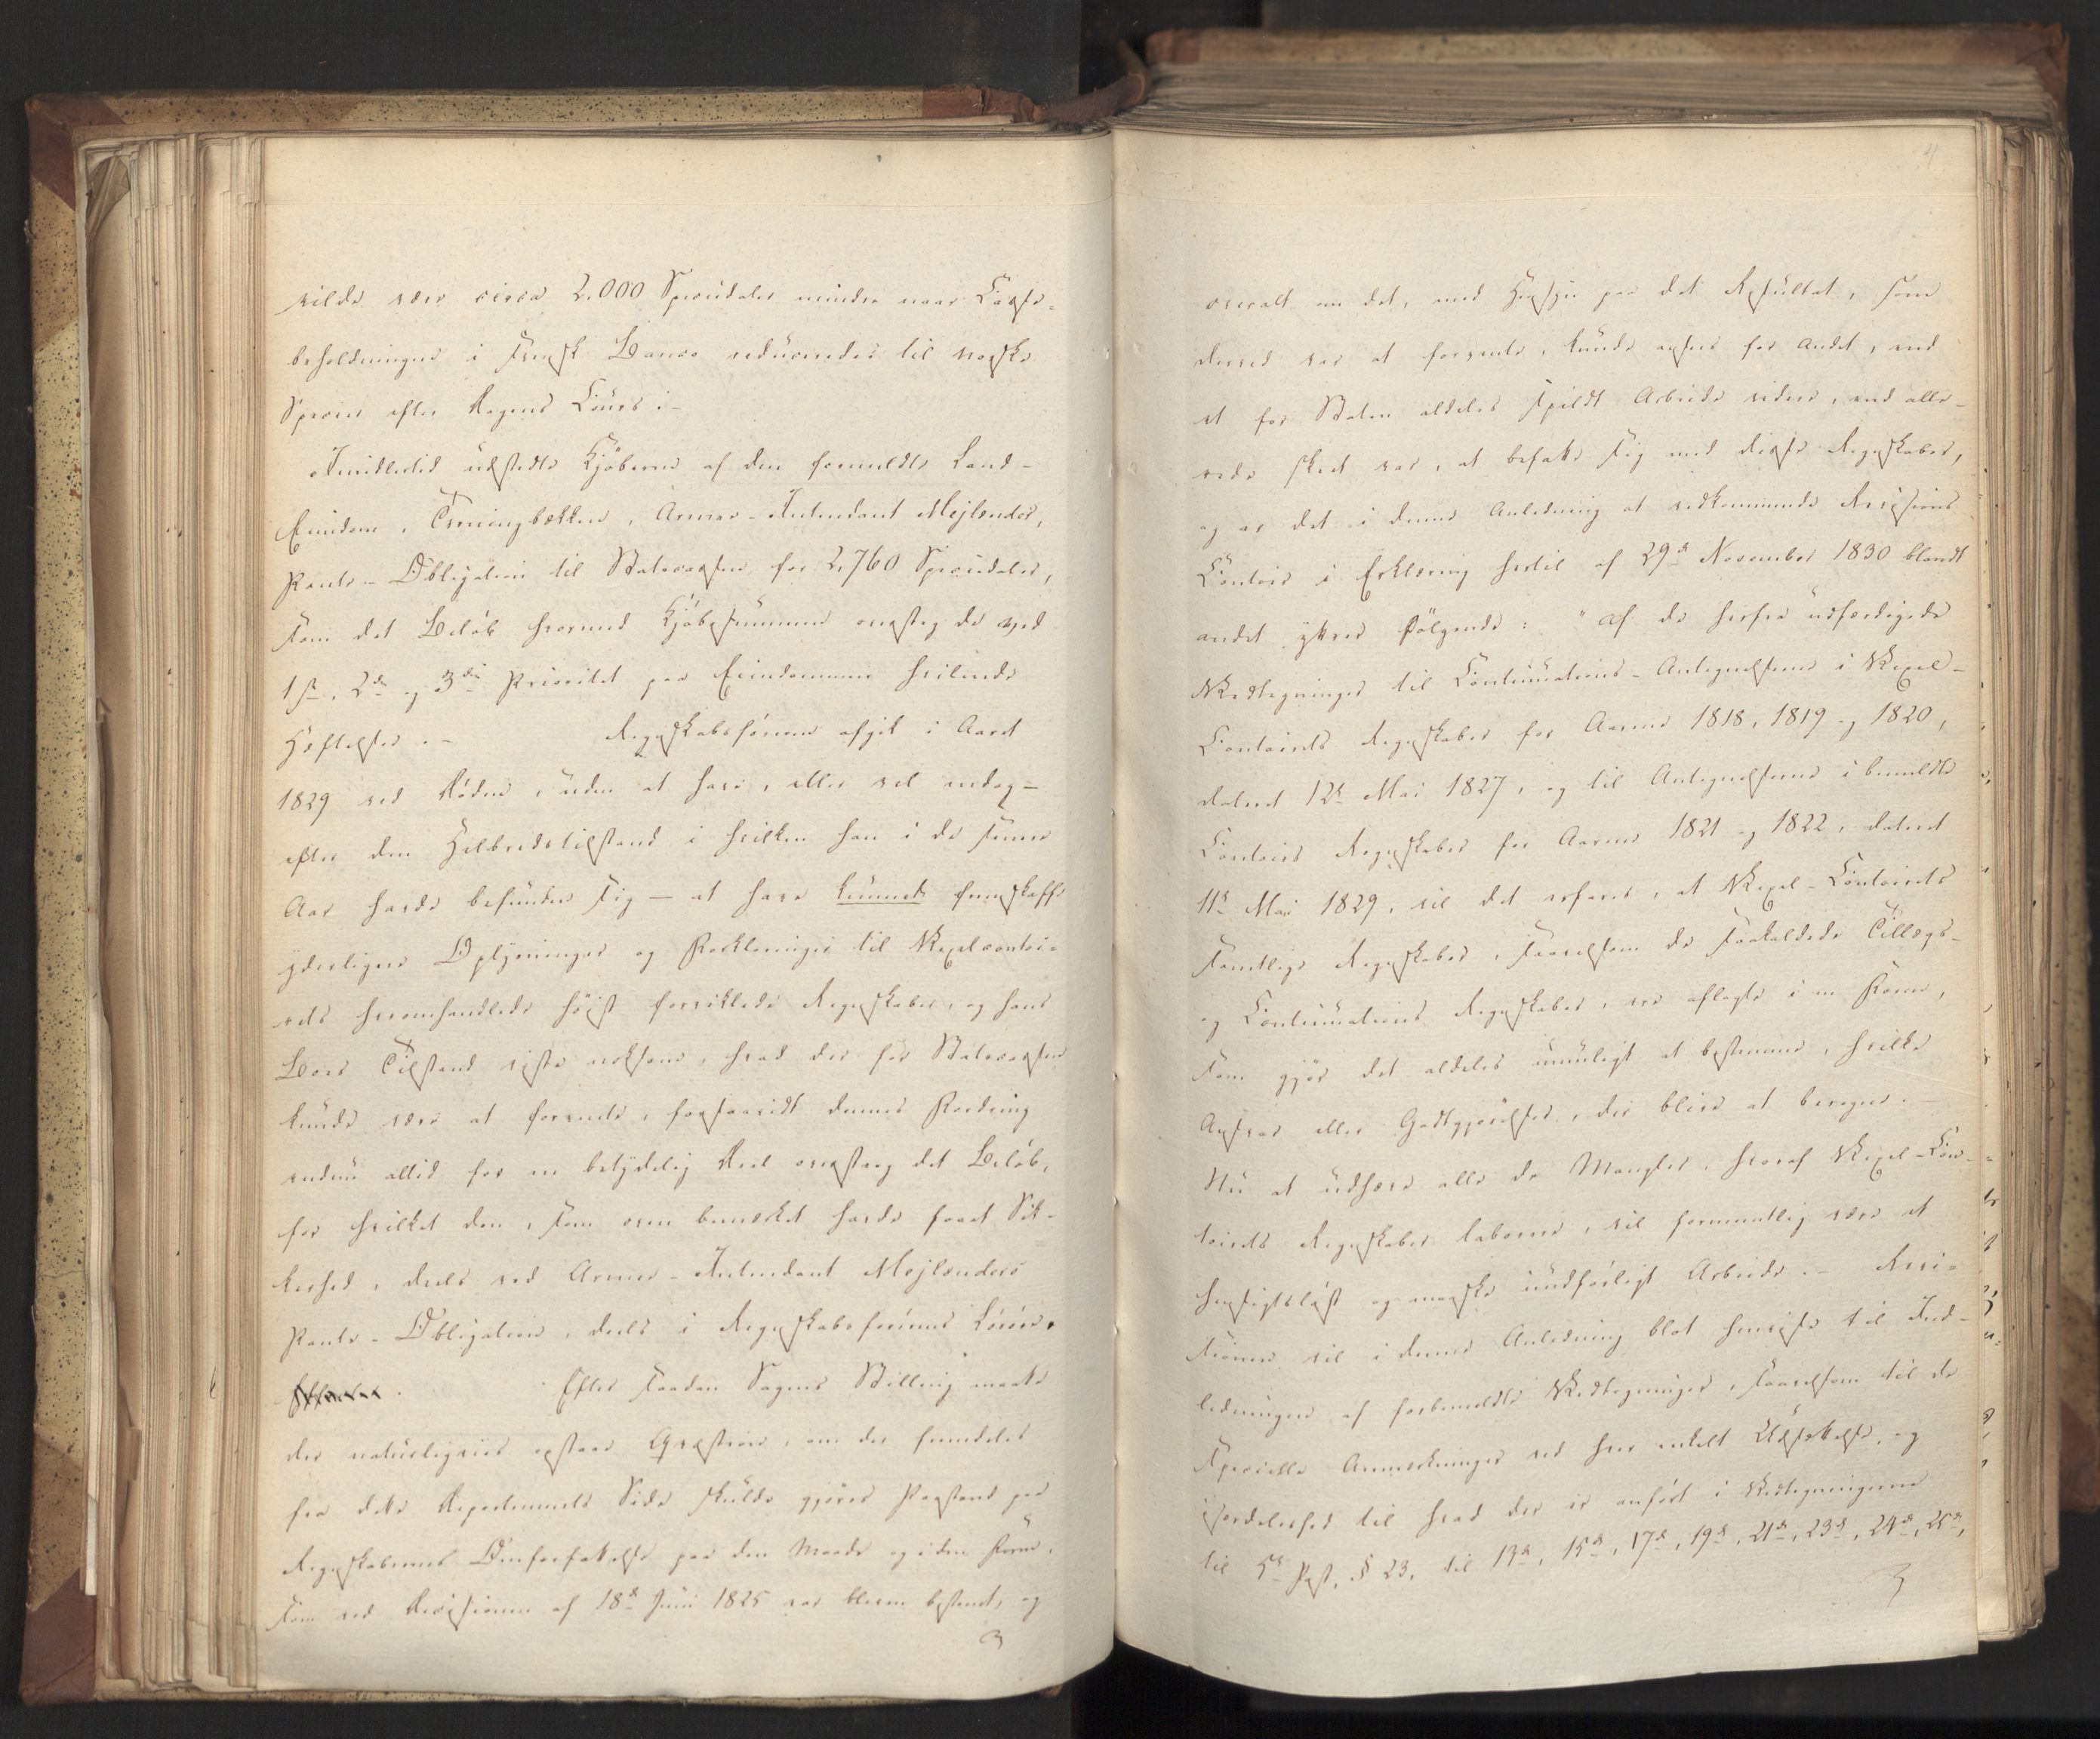 vilde være circa 2,000 Speciedaler mindre naar Casse-
beholdningen i svensk Banco reduceredes til norske
Species efter Dagens Cours i-
Imidlertid udstedte Kjöberne af den formeldte Land-
Eiendom, Tærningbækken, Armee-Intendant Mejlender,
Pante-Obligation til Statscassen for 2,760 Speciedaler,
som det Belöb hvormed Kjöbesummen oversteg de ved
1ste, 2den og 3die Prioritet paa Eiendommen hvilende
Hæftelser.-
Regnskabsföreren afgik i Aaret
1829 ved Döden, uden at have, eller vel endog -
efter den Helbredstilstand i hvilken han i de senere
Aar havde befundet sig - at have kunnet fremskaffe
yderligere Oplysninger og Forklaringer til Vexelcontoi-
rets hvoromhandlede höist forviklede Regnskaber, og hans
Boes Tilstand viste noksom, hvad der for Statscassen
kunde være at forvente, forsaavidt dennes Fordring
endnu altid for en betydelig Deel oversteg det Belöb,
for hvilket den, som oven bemærket havde faaet Sik-
kerhed, deels ved Armee-Intendant Mejlenders
Pante-Obligation, deels i Regnskabsförerens Lösöre.
Efter saadan Sagens Stilling maatte
der naturligviis opstaae Qvæstion, om der fremdeles
fra dette Departements Side skulde gjöres Paastand paa
Regnskabernes Omforfattelse paa den Maade og i den Form,
som ved Decisionen af 18de Juni 1825 var bleven bestemt, og
overalt om det, med Hensyn paa det Resultat, som
derved var at forvente, kunde ansees for andet, end
et for Staten aldeles spildt Arbeide videre, end alle-
rede skeet var, at befatte sig med disse Regnskaber,
og er det i denne Anledning at vedkommende Revisions
Contoir i Erklæring hertil af 29de November 1830 blandt
andet yttrer fölgende: "Af de herfra udfærdigede
Vedtegninger til Continuations-Antegnelserne i Vexel-
Contoirets Regnskaber for Aarene 1818, 1819 og 1820,
dateret 12te Mai 1827, og til Antegnelserne i bemeldte
Contoirs Regnskaber for Aarene 1821 og 1822, dateret
11te Mai 1829, vil det erfares, at Vexel-Contoirets
samtlige Regnskaber, saavelsom de saakaldede Tillægs-
og Continuations Regnskaber, ere aflagte i en Form,
som gjör det aldeles umuligt at bestemme, hvilke
Ansvar eller Godtgjörelser, der blive at beregne.-
Nu at udhæve alle de Mangler, hvoraf Vexel-Con-
toirets Regnskaber laborere, vil formeentlig være et
hensigtslöst og maaskee uudförligt Arbeide.- Revi-
sionen vil i denne Anledning blot henvise til Ind-
ledningen af forbemeldte Vedtegninger, saavelsom til de
specielle Anmærkninger ved hver enkelt Udsættelse, og
isærdeleshed til hvad der er anfört i Vedtegningerne
til 5te Post, § 23, til 13de, 15de, 17de, 19de, 21de, 23de, 24de, 25de,